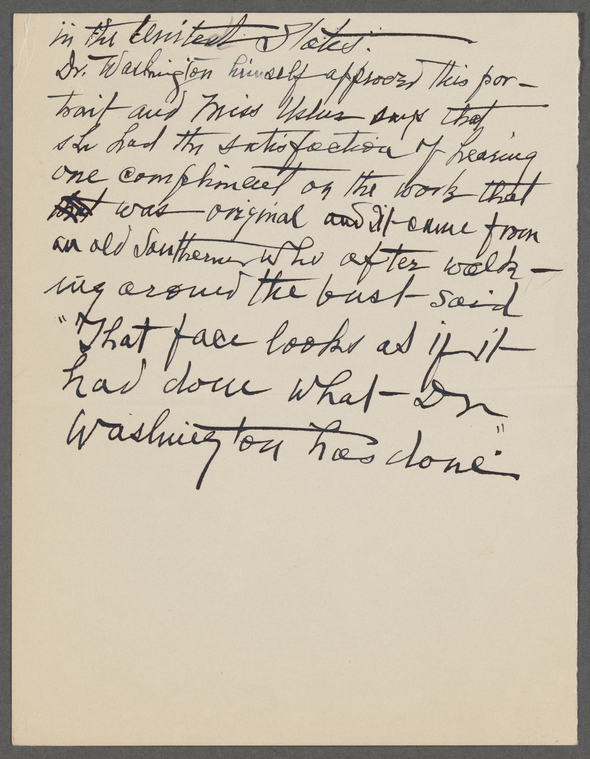 in the United States.
Dr. Washington himself approved this por-
trait and Miss Usher says that
she had the satisfaction of hearing
one compliment on the work that
was original and it came from
an old Southerner who after walk-
ing around the bust said
"That face looks as if it
had done what Dr
Washington has done"